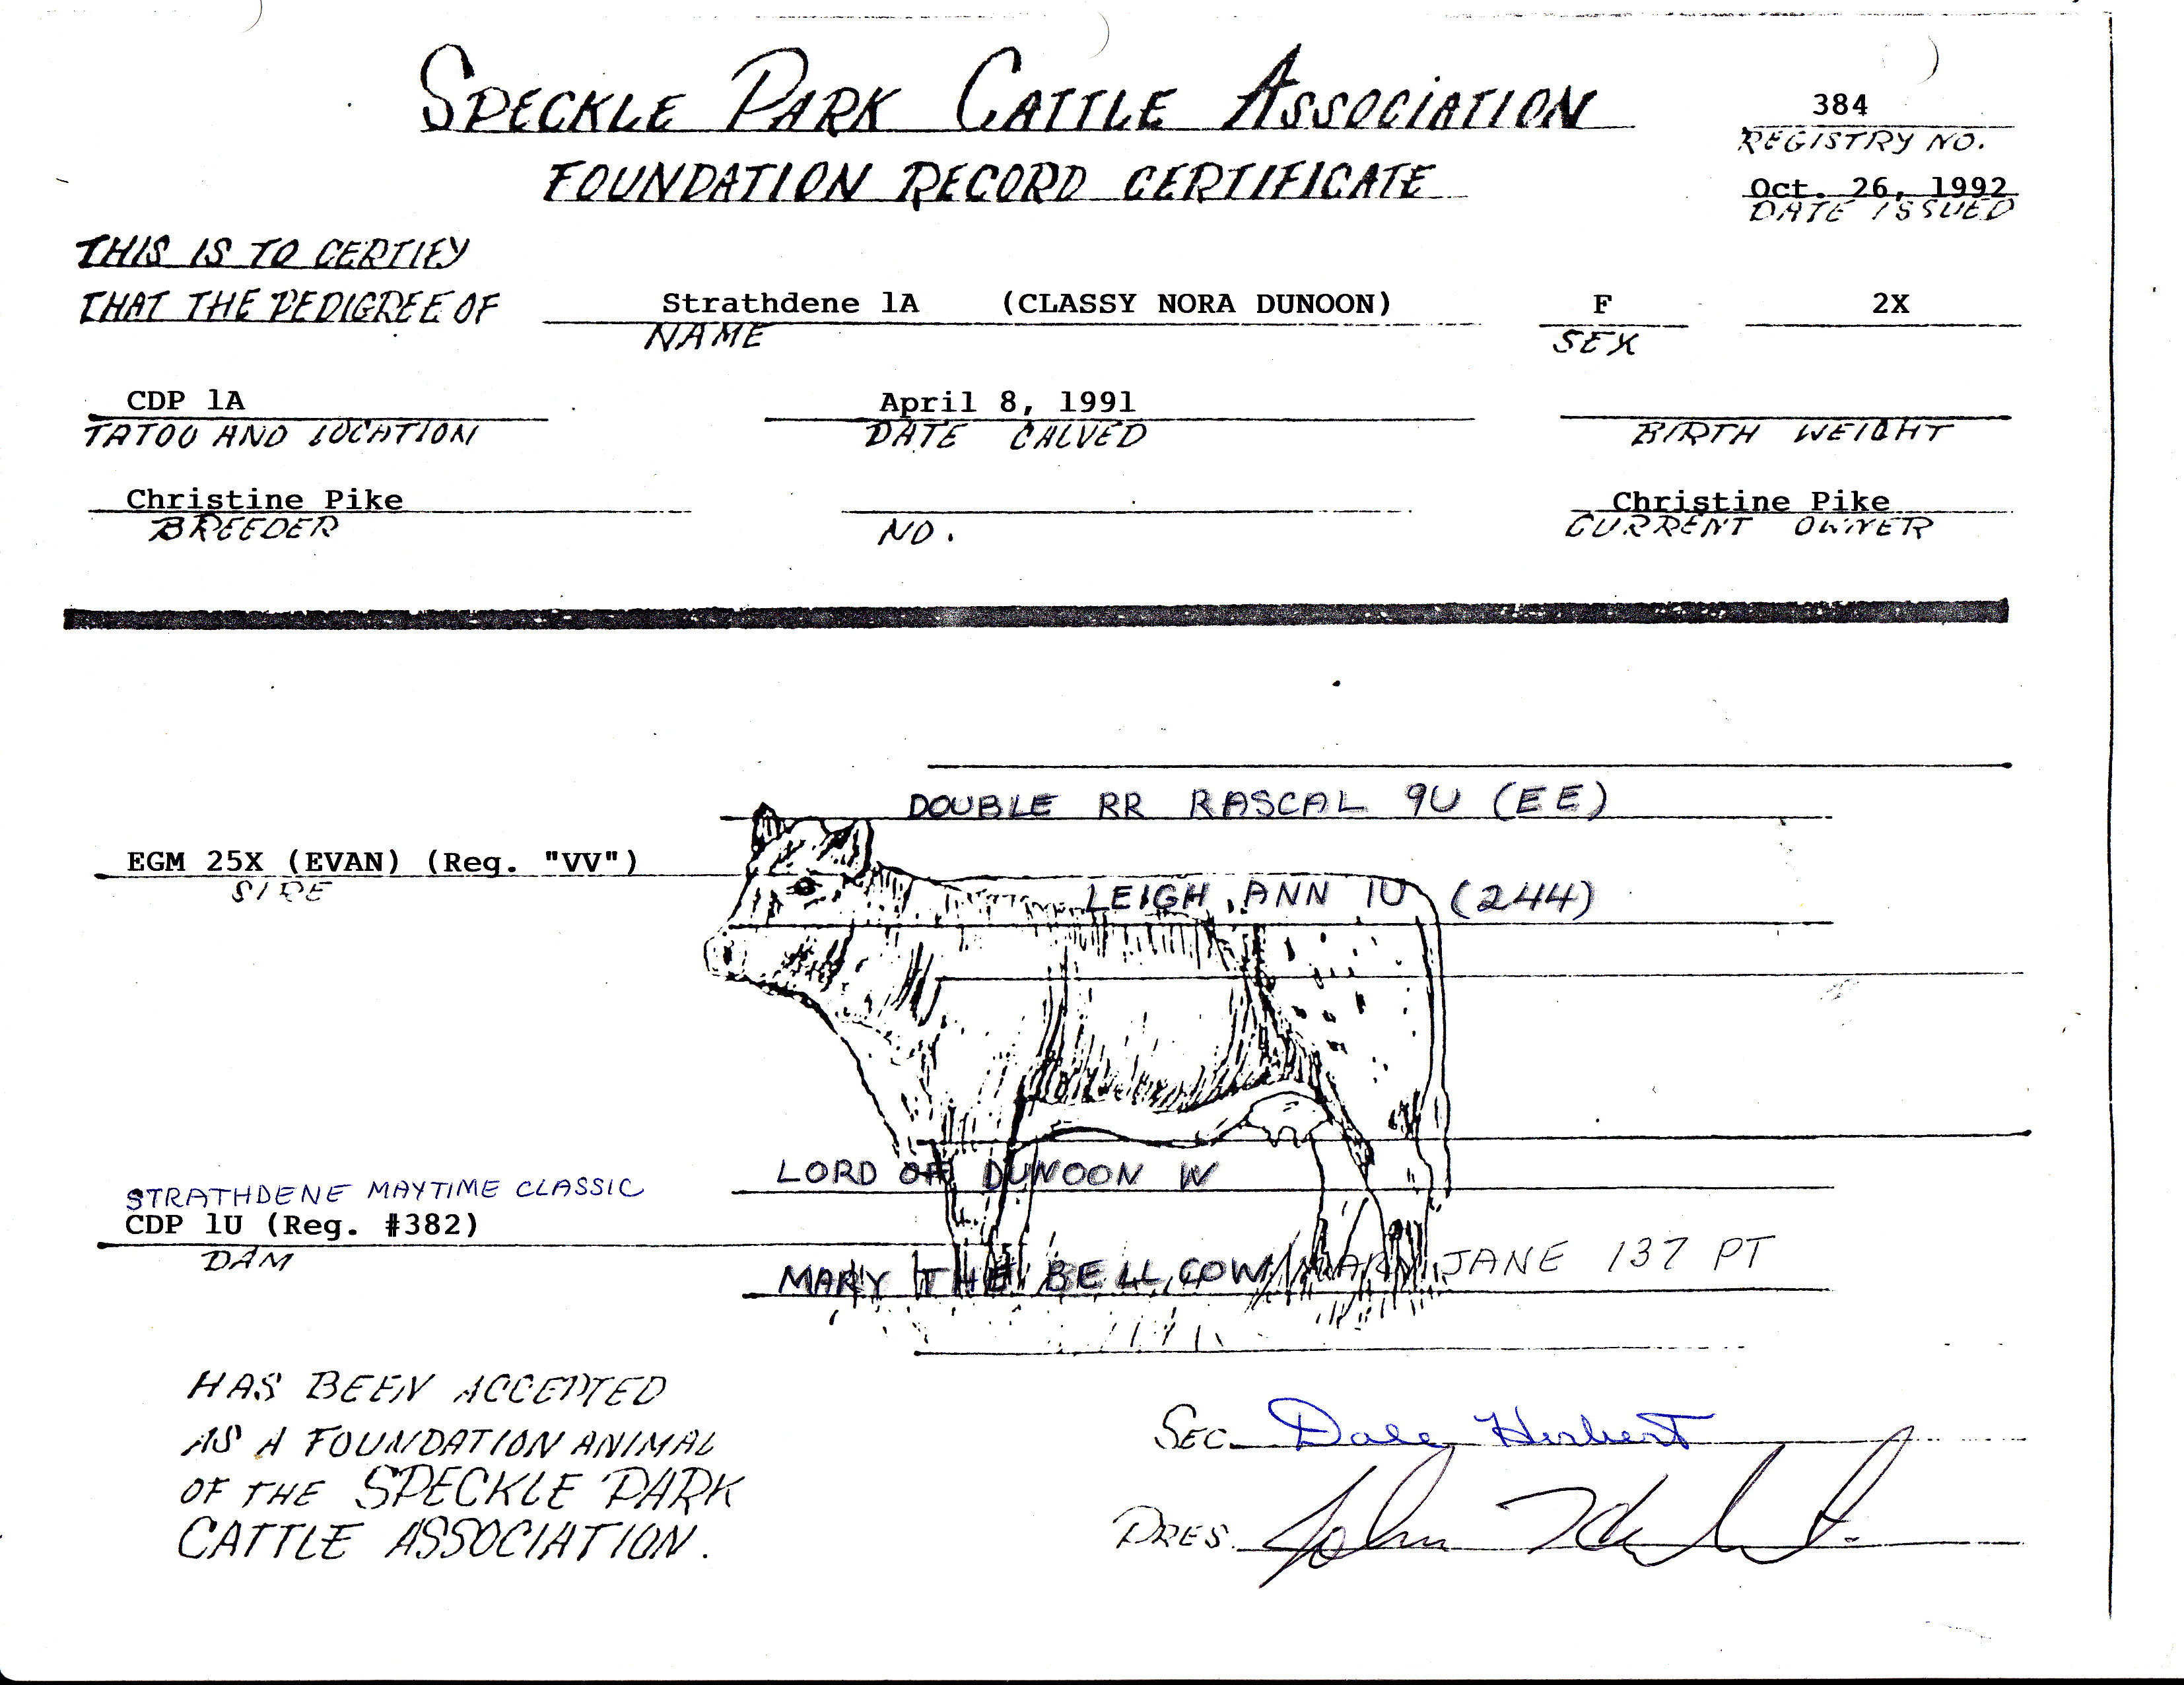 SPECKLE PARK CATTLE ASSOCIATION
384
REGISTRY NO.
FOUNDATION RECORD CERTIFICATE
Oct. 26, 1992
DATE ISSUED
THIS IS TO CERTIFY
THAT THE PEDIGREE OF Strathdene 1A (CLASSY NORA DUNOON) F 2X
NAME SEX
CDP 1A April 8, 1991
TATOO AND LOCATION DATE CALVED BIRTH WEIGHT
Christine Pike Christine Pike
BREEDER NO. CURRENT OWNER
DOUBLE RR RASCAL 9U (EE)
EGM 25X (EVAN) (Reg. "VV")
SIRE
LEIGH ANN 1U (244)
LORD OF DUNOON W
STRATHDENE MAYTIME CLASSIC
CDP 1U (Reg. #382)
DAM
MARY THE BELL COW/MARY JANE 137 PT
HAS BEEN ACCEPTED
AS A FOUNDATION ANIMAL
OF THE SPECKLE PARK
CATTLE ASSOCIATION.
SEC. Dale Herbert
PRES. John